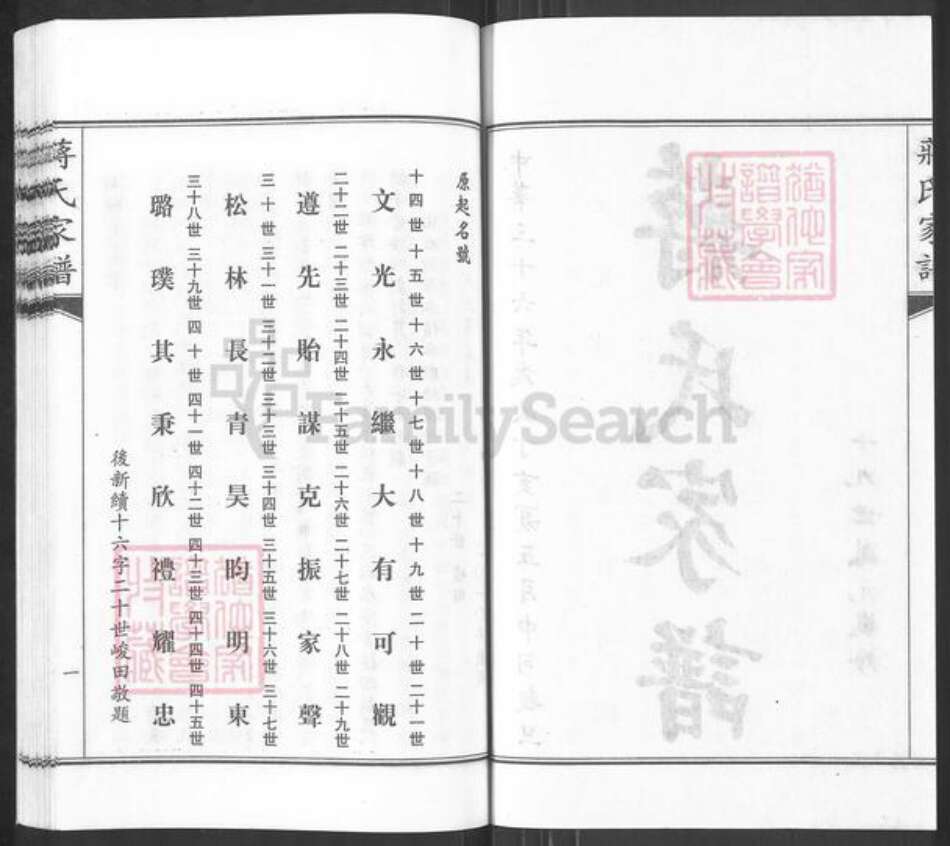 蔣氏家譜
原起名號
十四世 十五世 十六世 十七世 十八世 十九世 二十世 二十一世
文光永繼大有可觀
二十二世 二十三世 二十四世 二十五世 二十六世 二十七世 二十八世 二十九世
遵先貽謀克振家聲
三十世 三十一世 三十二世 三十三世 三十四世 三十五世 三十六世 三十七世
松林長青昊昀明東
三十八世 三十九世 四十世 四十一世 四十二世 四十三世 四十四世 四十五世
璐璞其秉欣禮耀忠
後新續十六字二十世峻田敬題
一
蔣氏家譜
FamilySearch